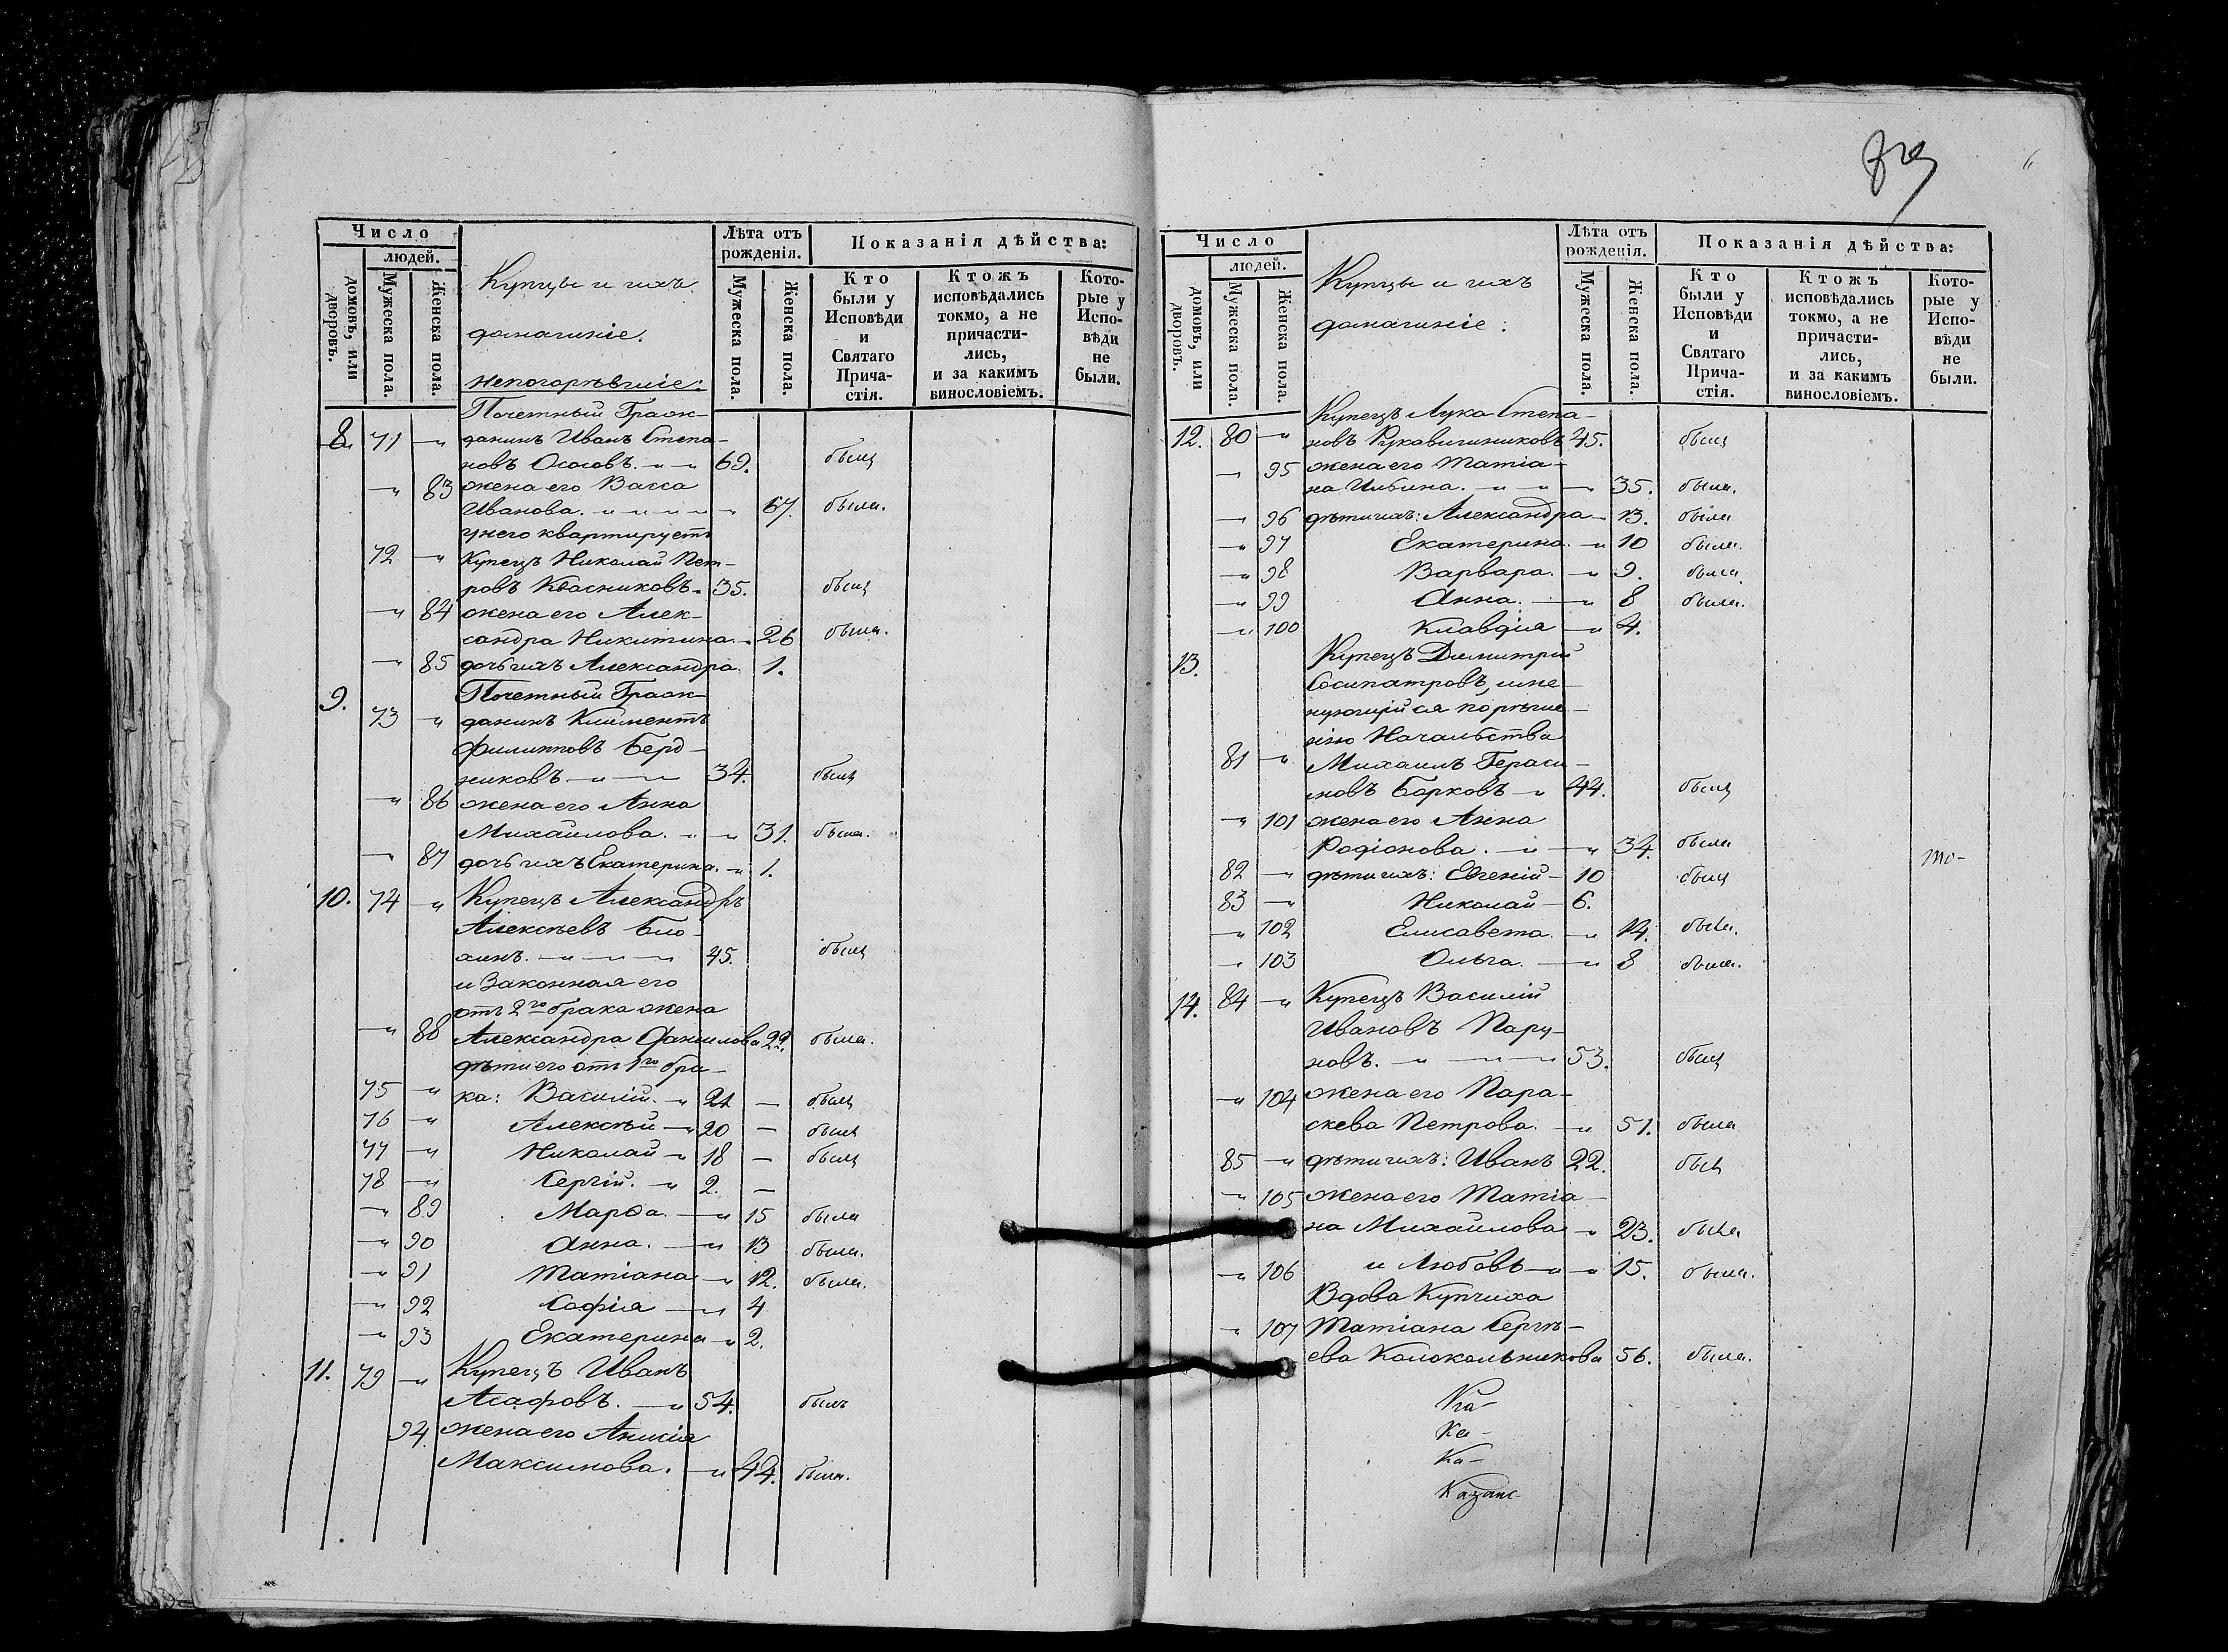 Число
людей.
домовъ, или дворовъ.
Мужеска пола.
Женска пола.
Купцы и ихъ
домашніе.
непогорѣвшіе:
Лѣта отъ рожденія.
Мужеска пола.
Женска пола.
Показанія дѣйства:
Кто были у Исповѣди и Святаго Прича-стія.
Ктожъ исповѣдались токмо, а не причасти-лись, и за какимъ винословіемъ.
Кото-рые у Испо-вѣди не были.
8. 71 „ Почетный Граж-
данинъ Иванъ Степа-
новъ Ососовъ. 69. былъ
„ 83 жена его Васса
Иванова. 67. была.
у него квартируетъ
72 „ Купецъ Николай Пет-
ровъ Квасниковъ 35. былъ
„ 84 жена его Алек-
сандра Никитина. 26 была.
„ 85 дочь ихъ Александра. 1.
9. Почетный Граж-
73 „ данинъ Климентъ
Филипповъ Берд-
никовъ 34. былъ
„ 86 жена его Анна
Михайлова. 31. была.
„ 87 дочь ихъ Екатерина. 1.
10. 74 „ Купецъ Александръ
Алексѣевъ Блю-
хинъ. 45. былъ
и Законная его
отъ 2го брака жена
„ 88 Александра Данилова 22. была.
дѣти его отъ 1го бра-
75 „ ка: Василій. 21 — былъ
76 „ Алексѣй 20 — былъ
77 „ Николай 18 — былъ
78 „ Сергій. 2. —
„ 89 Марѳа. 15 была
„ 90 Анна. 13 была.
„ 91 Татіана 12. была.
„ 92 Софія 4
„ 93 Екатерина 2.
11. 79 „ Купецъ Иванъ
Асафовъ. 54. былъ
94. жена его Анисія
Максимова. 44. была.
6
Число
людей.
домовъ, или дворовъ.
Мужеска пола.
Женска пола.
Купцы и ихъ
домашніе:
Лѣта отъ рожденія.
Мужеска пола.
Женска пола.
Показанія дѣйства:
Кто были у Исповѣди и Святаго Прича-стія.
Ктожъ исповѣдались токмо, а не причасти-лись, и за какимъ винословіемъ.
Кото-рые у Испо-вѣди не были.
Купецъ Лука Степа-
12. 80 „ новъ Рукавишниковъ 45. былъ
„ 95 жена его Татіа-
на Ильина. 35. была.
„ 96 дѣти ихъ: Александра 13. была
„ 97 Екатерина. 10 была.
„ 98 Варвара. 9. была
„ 99 Анна. 8 была.
„ 100 Клавдія 4.
13. Купецъ Димитрій
Сосипатровъ, име-
нующійся по рѣше-
нію Начальства
81 „ Михаилъ Гераси-
мовъ Борковъ 44. былъ
„ 101 жена его Анна
Родіонова. 34. была
то-
82 „ дѣти ихъ: Евгеній 10 былъ
83 „ Николай 6.
„ 102 Елисавета 14. была.
„ 103 Ольга. 8 была.
14. 84 „ Купецъ Василій
Ивановъ Пару-
новъ. 53. былъ
„ 104 жена его Пара-
скева Петрова. 51. была
85 „ дѣти ихъ: Иванъ 22. былъ
„ 105 жена его Татіа-
на Михайлова 23. была
„ 106 и Любовь 15. была.
Вдова Купчиха
„ 107 Татіана Сергѣ-
ева Колокольникова 56. была.
Ка-
Ка-
Казанс-